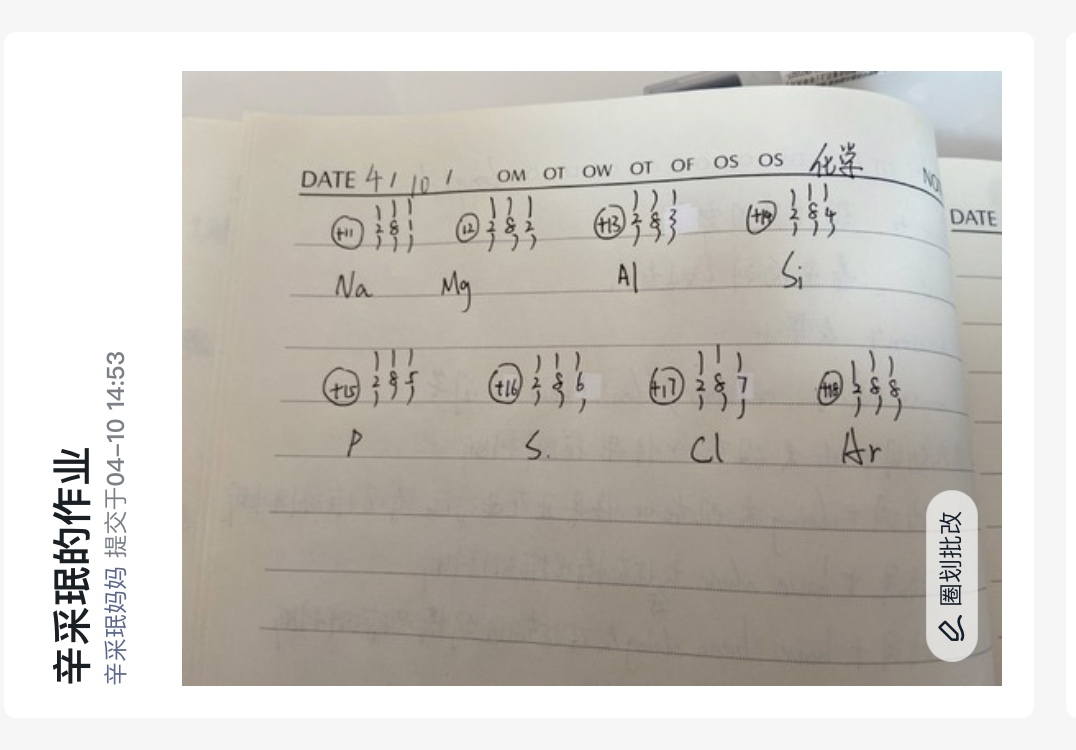 辛采珉的作业
辛采珉妈妈 提交于04-10 14:53
DATE 4 / 10 / OM OT OW OT OF OS OS 化学 NO
DATE
+11 2 8 1 12 2 8 2 +13 2 8 3 +14 2 8 4
Na Mg Al Si
+15 2 8 5 +16 2 8 6 +17 2 8 7 +18 2 8 8
P S. Cl Ar
圈划批改